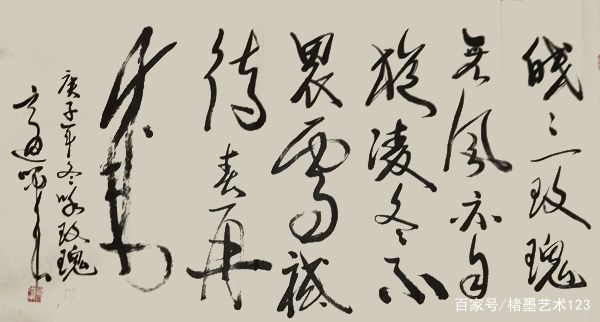 一玫瑰
無风亦自
旎凌冬不
畏雪祗
待春再
庚子年冬咏玫瑰
百家号/楮墨艺术123